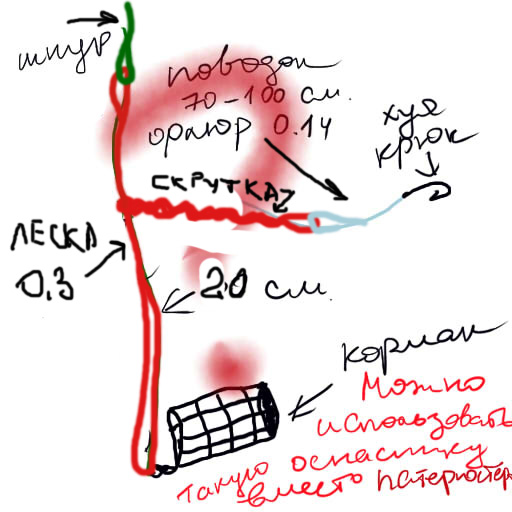 шнур
поводок
70-100 см.
фтор 0.14
крюк
СКРУТКА
ЛЕСКА
0,3
20 см.
кормак
Можно
использовать
такую оснастку
вместо патерностер